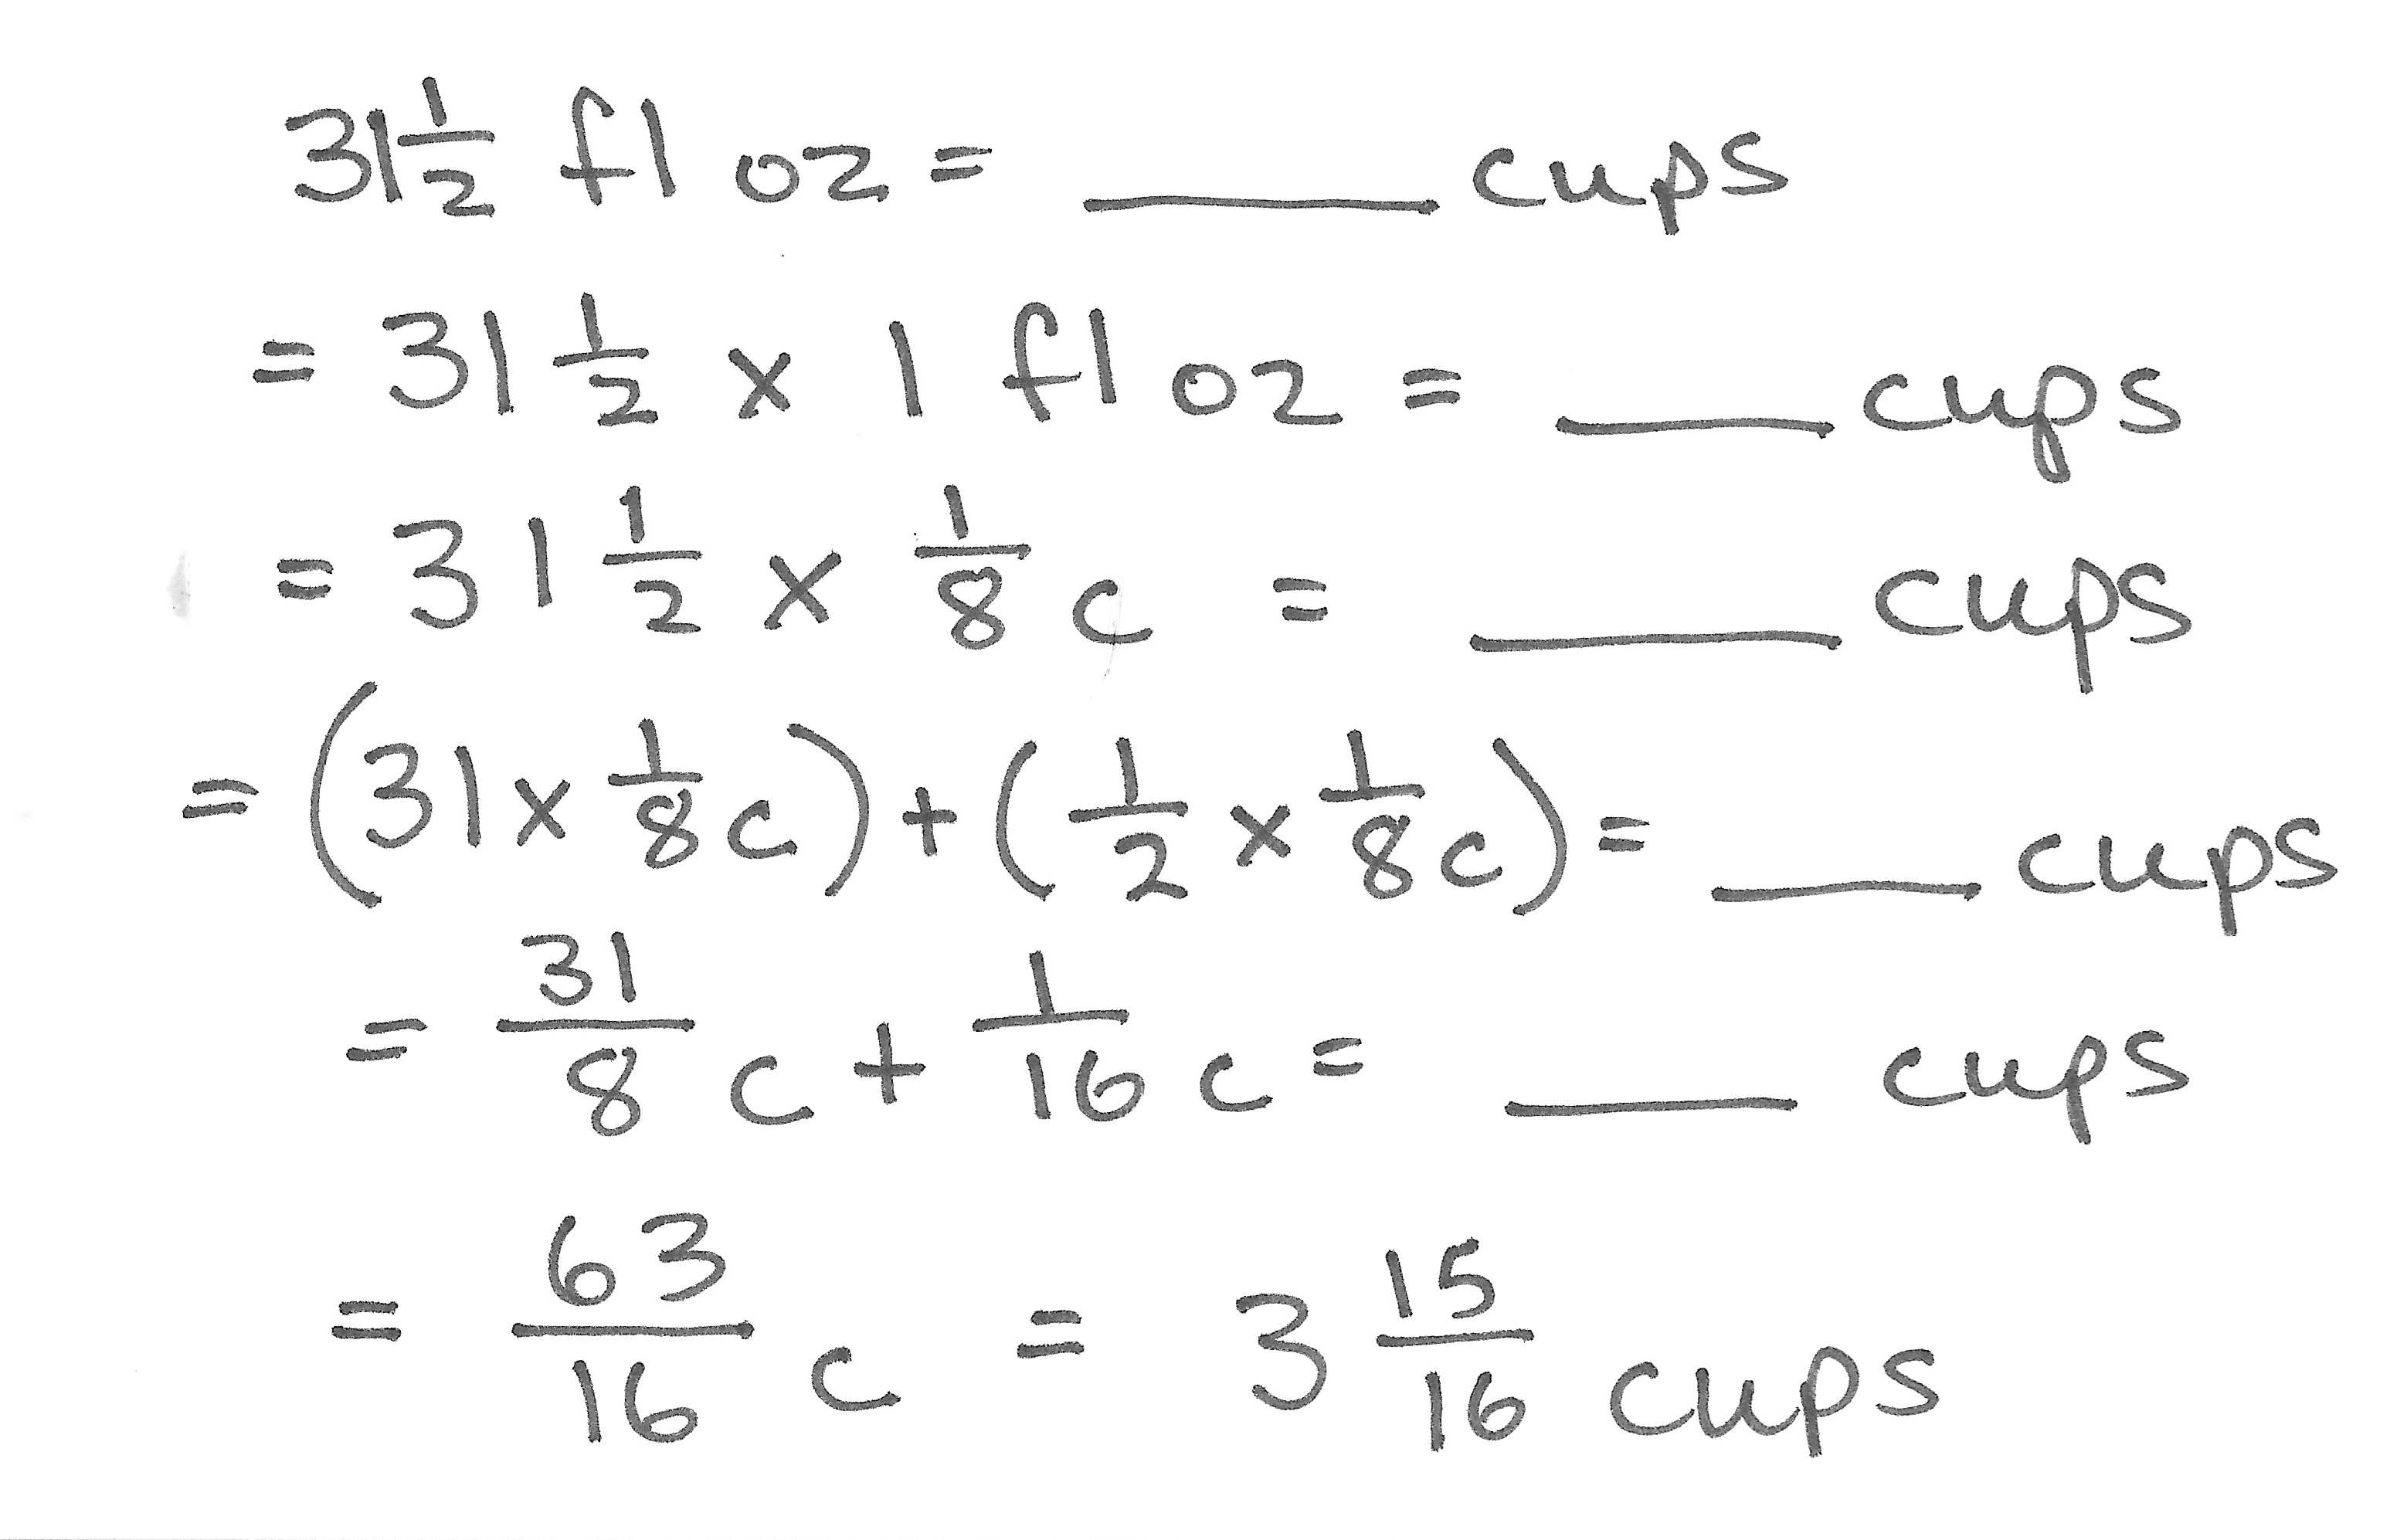 31 1/2 fl oz = ____ cups
= 31 1/2 x 1 fl oz = ____ cups
= 31 1/2 x 1/8 c = ____ cups
= (31 x 1/8 c) + (1/2 x 1/8 c) = ____ cups
= 31/8 c + 1/16 c = ____ cups
= 63/16 c = 3 15/16 cups